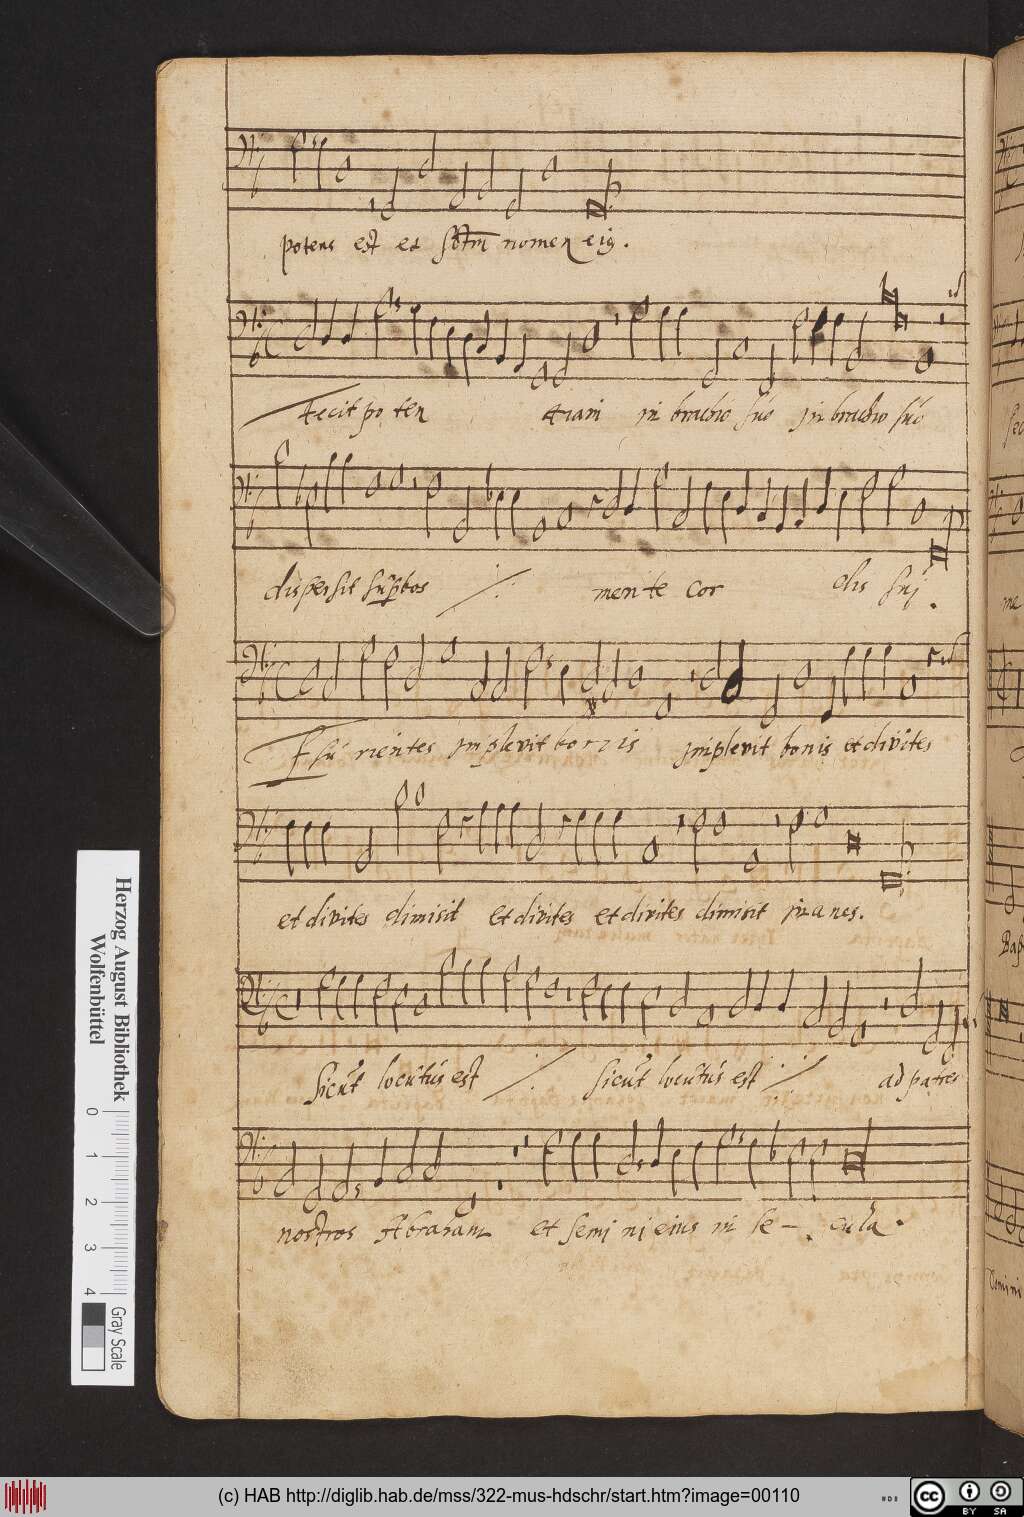 potens est et sctm nomen eius.
Fecit po ten tiam in brachio suo in brachio suo
dispersit supbos mente cor dis sui.
Esu rientes implevit bonis implevit bonis et divites
et divites dimisit et divites et divites dimisit inanes.
Sicut locutus est sicut locutus est ad patres
nostros Abraham et semi ni eius in se - cula.
Herzog August Bibliothek
Wolfenbüttel
0 1 2 3 4
Gray Scale
(c) HAB http://diglib.hab.de/mss/322-mus-hdschr/start.htm?image=00110
cc BY SA